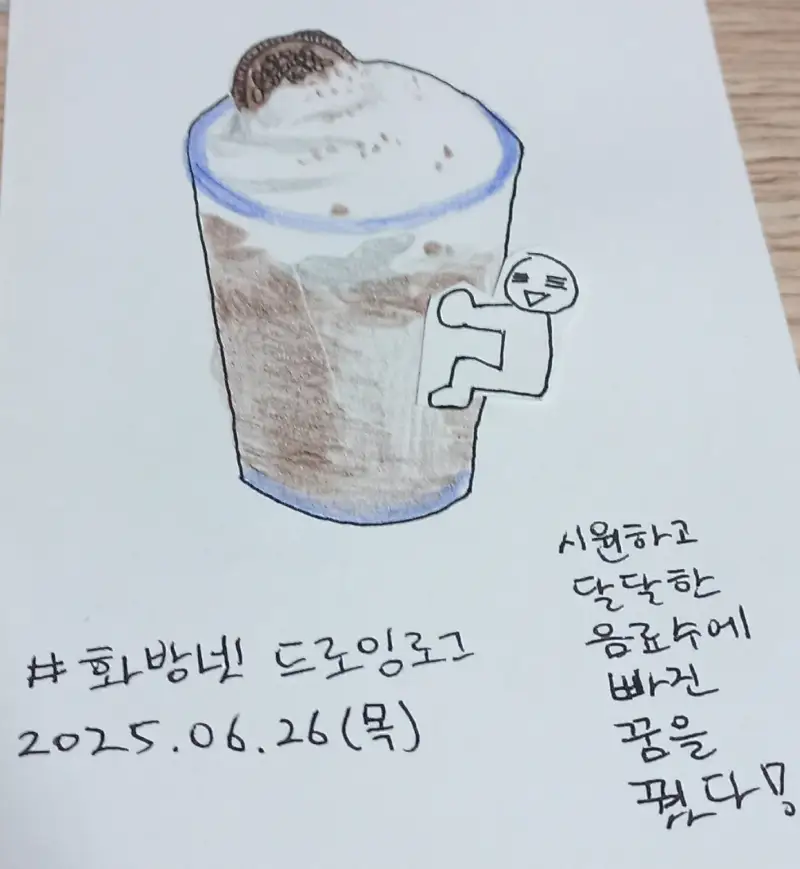 시원하고
달달한
음료수에
빠진
꿈을
꿨다!
#화방넷 드로잉로그
2025.06.26(목)